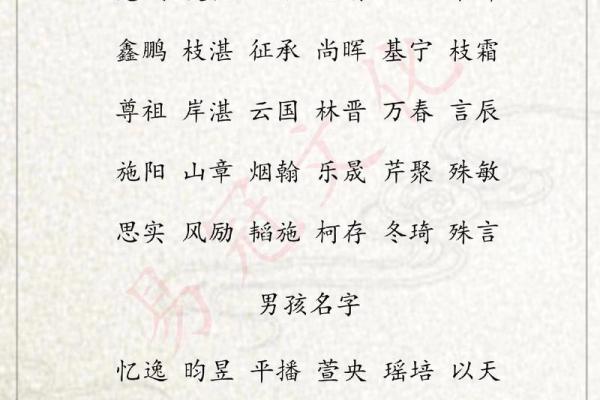 鑫鹏 枝湛 征承 尚晖 基宁 枝霜
尊祖 岸湛 云国 林晋 万春 言辰
施阳 山章 烟翰 乐晟 芹聚 殊敏
思实 风励 韬施 柯存 冬琦 殊言
男孩名字
忆逸 昀昱 平播 萱央 瑶培 以天
易冠文化